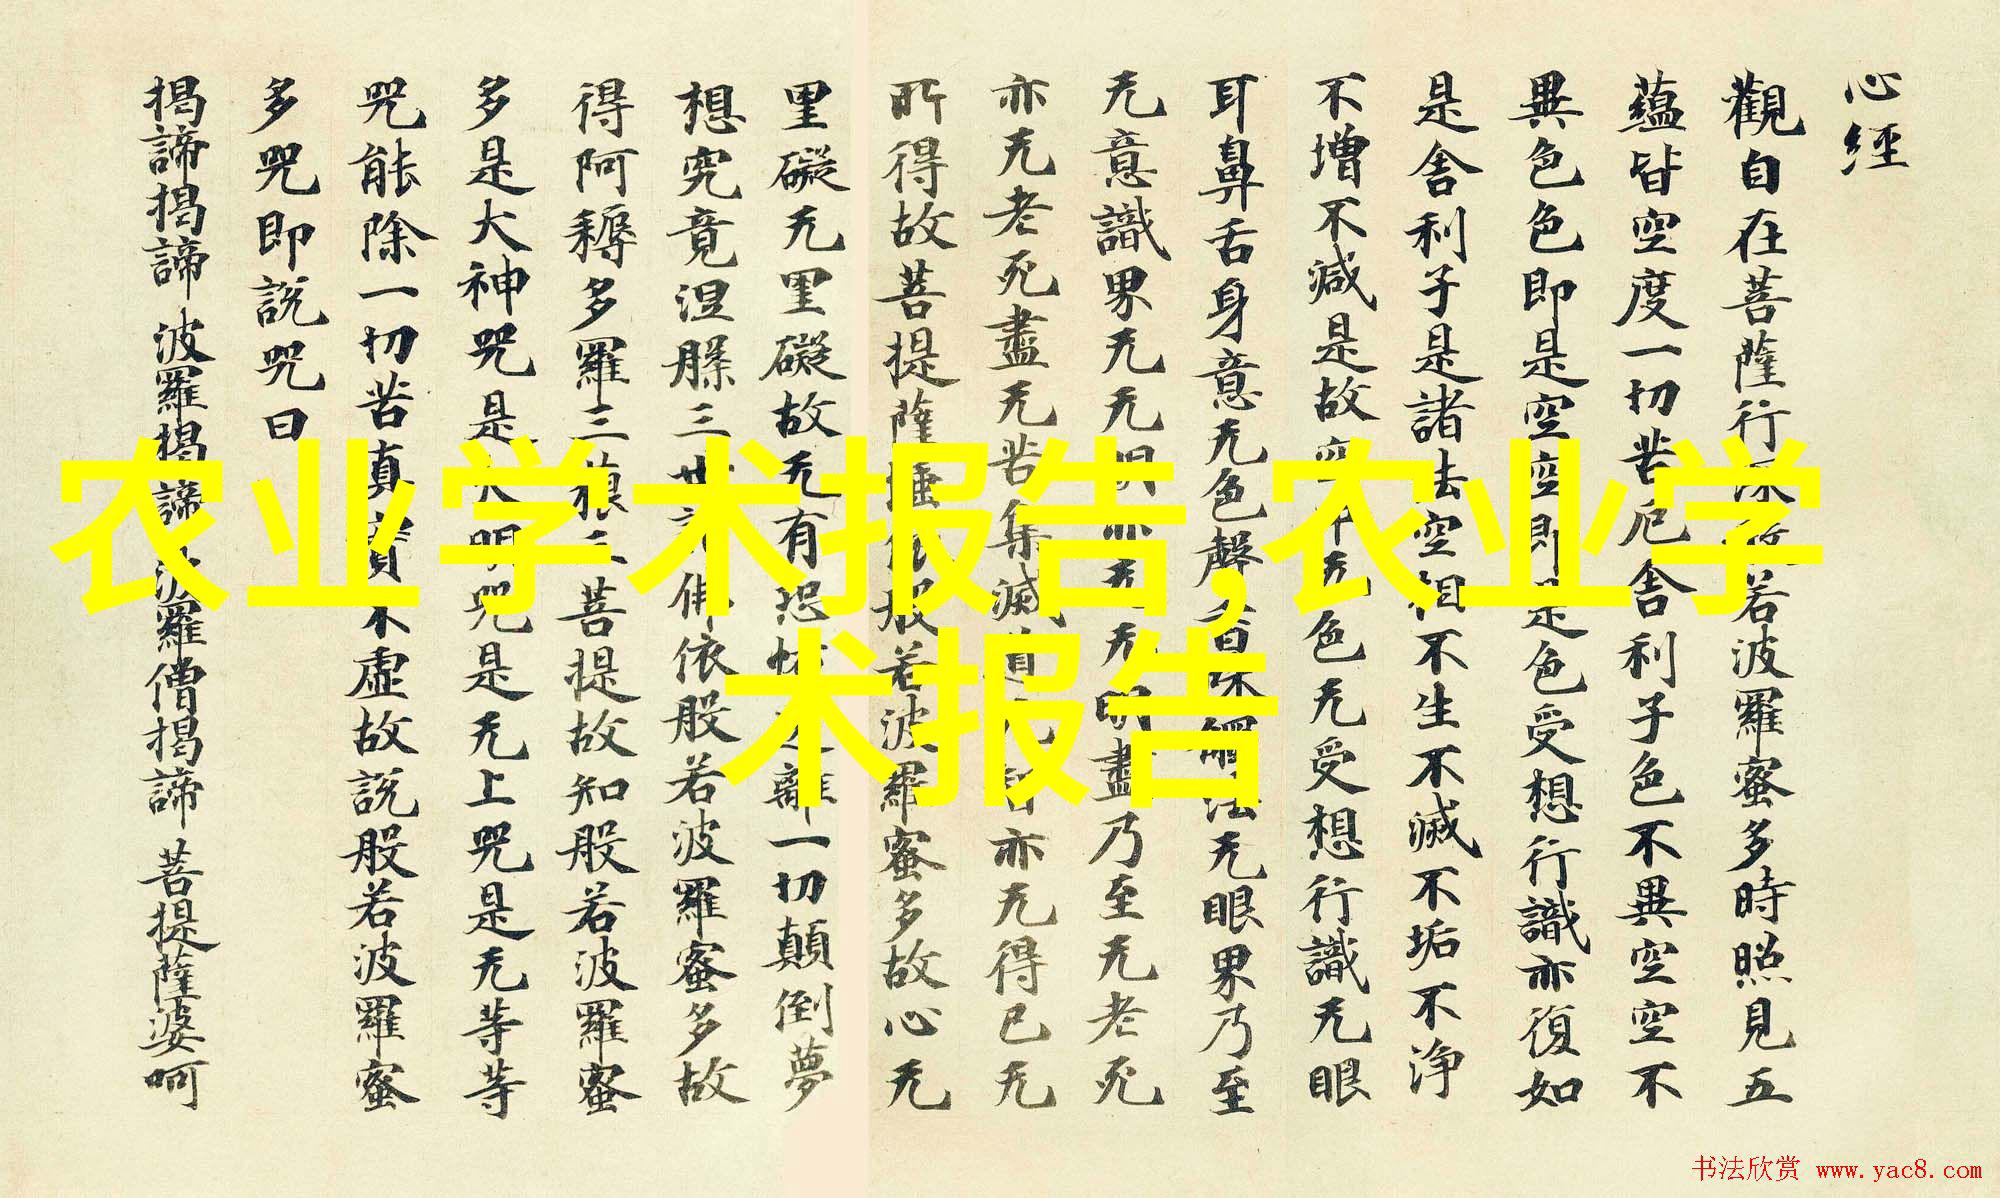 心經
觀自在菩薩行深般若波羅蜜多時照見五
蘊皆空度一切苦厄舍利子色不異空空不
異色色即是空空即是色受想行識亦復如
是舍利子是諸法空相不生不滅不垢不净
不增不減是故空中无色无受想行識无眼
耳鼻舌身意无色聲香味觸法无眼界乃至
无意識界无无明亦无无明盡乃至无老死
亦无老死盡无苦集滅道无智亦无得已无
所得故菩提薩埵依般若波羅蜜多故心无
罣礙无罣礙故无有恐怖遠離一切顛倒夢
想究竟涅槃三世諸佛依般若波羅蜜多故
得阿耨多羅三藐三菩提故知般若波羅蜜
多是大神咒是大明咒是无上咒是无等等
咒能除一切苦真實不虛故說般若波羅蜜
多咒即說咒曰
揭諦揭諦 波羅揭諦 波羅僧揭諦 菩提薩婆呵
农业学术报告,农业学
术报告
书法欣赏 www.yac8.com